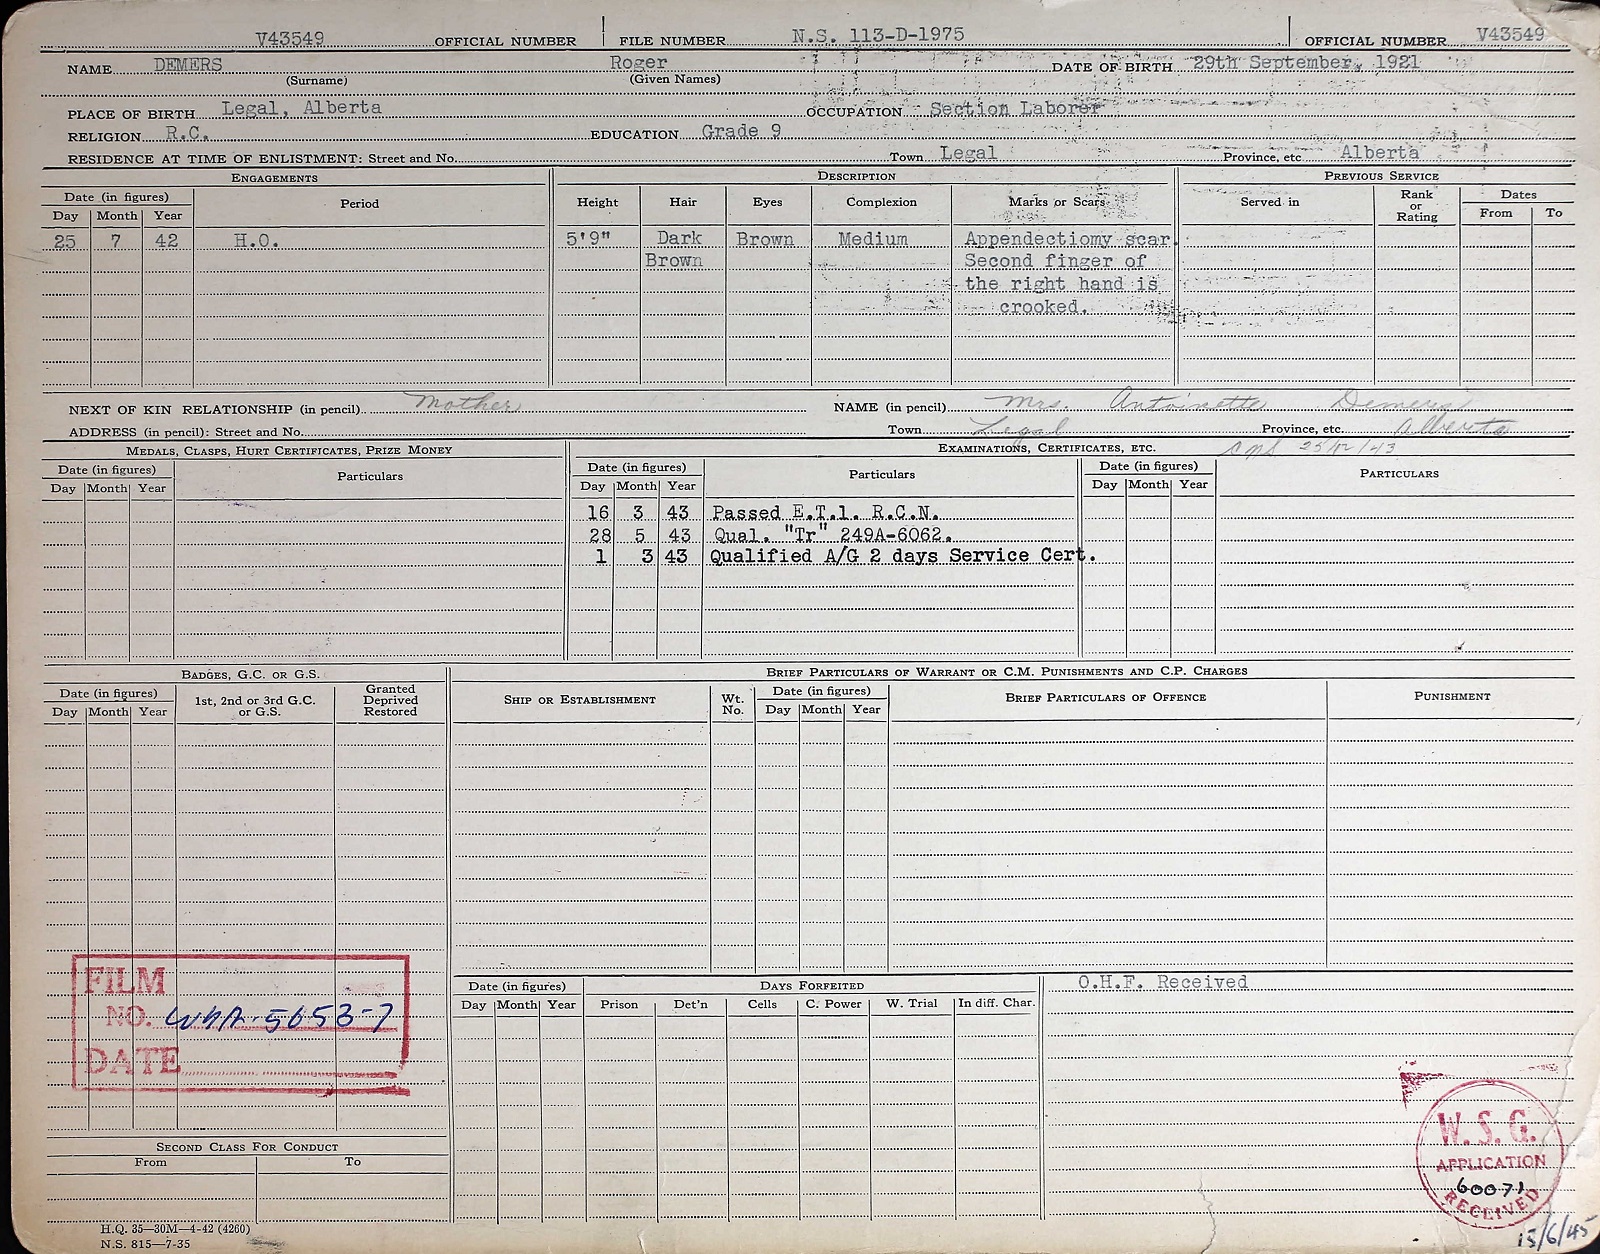 V43549 OFFICIAL NUMBER FILE NUMBER N.S. 113-D-1975 OFFICIAL NUMBER V43549
NAME DEMERS Roger DATE OF BIRTH 29th September, 1921
(Surname) (Given Names)
PLACE OF BIRTH Legal, Alberta OCCUPATION Section Laborer
RELIGION R.C. EDUCATION Grade 9
RESIDENCE AT TIME OF ENLISTMENT: Street and No. Town Legal Province, etc Alberta
ENGAGEMENTS DESCRIPTION PREVIOUS SERVICE
Date (in figures) Period Height Hair Eyes Complexion Marks or Scars Served in Rank or Rating Dates
Day Month Year From To
25 7 42 H.O. 5'9" Dark Brown Medium Appendectiomy scar.
Brown Second finger of
the right hand is
crooked.
NEXT OF KIN RELATIONSHIP (in pencil) Mother NAME (in pencil) Mrs. Antoinette Demers
ADDRESS (in pencil): Street and No. Town Legal Province, etc. Alberta
MEDALS, CLASPS, HURT CERTIFICATES, PRIZE MONEY EXAMINATIONS, CERTIFICATES, ETC. 25/12/43
Date (in figures) Particulars Date (in figures) Particulars Date (in figures) PARTICULARS
Day Month Year Day Month Year Day Month Year
16 3 43 Passed E.T.1. R.C.N.
28 5 43 Qual. "Tr" 249A-6062.
1 3 43 Qualified A/G 2 days Service Cert.
BADGES, G.C. OR G.S. BRIEF PARTICULARS OF WARRANT OR C.M. PUNISHMENTS AND C.P. CHARGES
Date (in figures) 1st, 2nd or 3rd G.C. or G.S. Granted Deprived Restored SHIP OR ESTABLISHMENT Wt. No. Date (in figures) BRIEF PARTICULARS OF OFFENCE PUNISHMENT
Day Month Year Day Month Year
FILM
NO. WSA-5653-7
DATE
Date (in figures) DAYS FORFEITED O.H.F. Received
Day Month Year Prison Det'n Cells C. Power W. Trial In diff. Char.
SECOND CLASS FOR CONDUCT
From To
W. S. G.
APPLICATION
60071
RECEIVED
15/6/45
H.Q. 35—30M—4-42 (4260)
N.S. 815—7-35